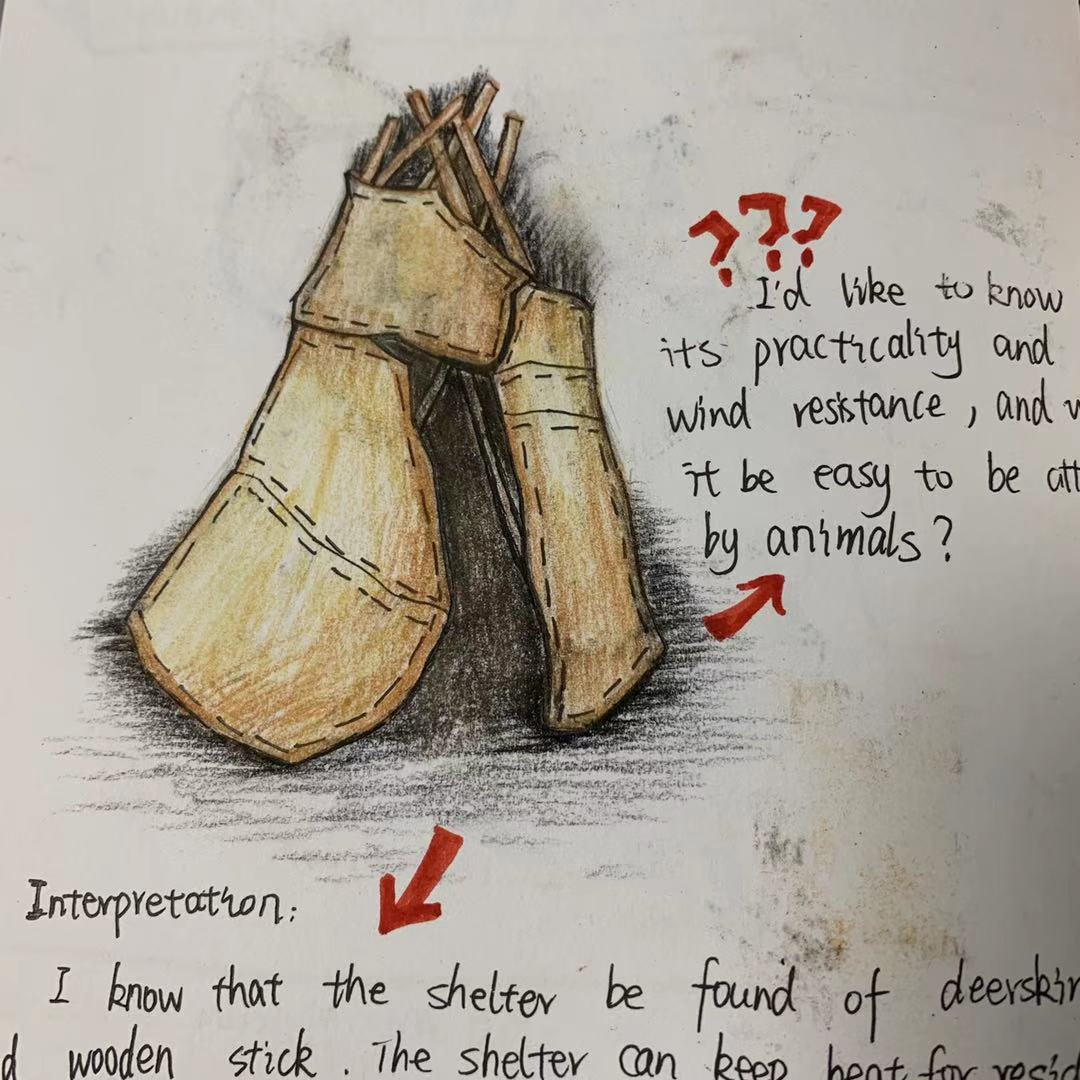 ???
I'd like to know
its practicality and
wind resistance, and
it be easy to be
by animals?
Interpretation:
I know that the shelter be found of
wooden stick. The shelter can keep heat for